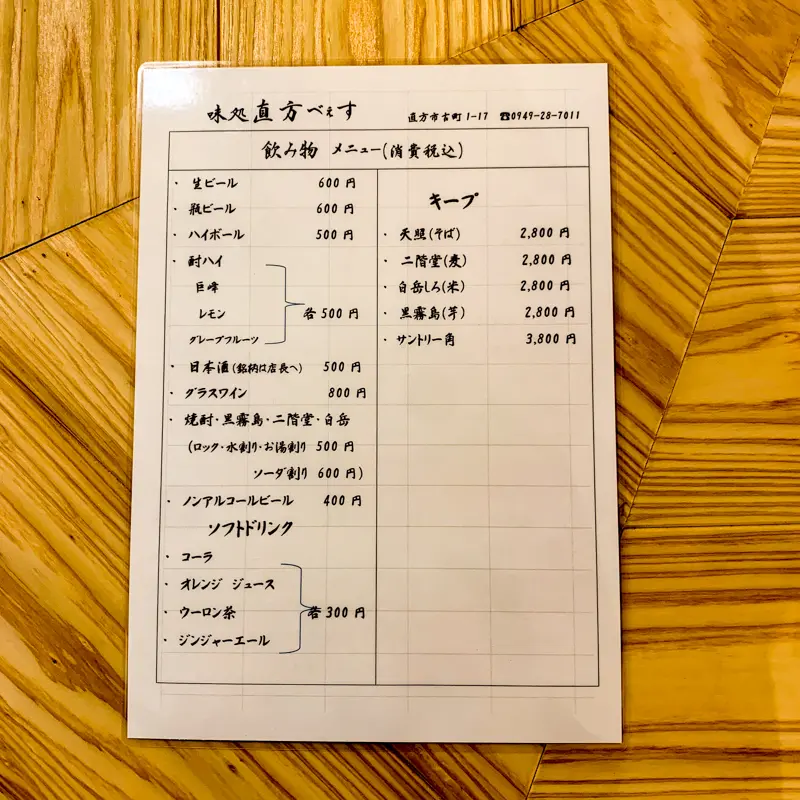 味処 直方べぇす
直方市古町1-17 ☎0949-28-7011
飲み物 メニュー(消費税込)
・ 生ビール 600 円
・ 瓶ビール 600 円
・ ハイボール 500 円
・ 酎ハイ
巨峰
レモン 各 500 円
グレープフルーツ
・ 日本酒(銘柄は店長へ) 500 円
・ グラスワイン 800 円
・ 焼酎・黒霧島・二階堂・白岳
(ロック・水割り・お湯割り 500 円
ソーダ割り 600 円)
・ ノンアルコールビール 400 円
ソフトドリンク
・ コーラ
・ オレンジ ジュース
・ ウーロン茶 各 300 円
・ ジンジャーエール
キープ
・ 天照(そば) 2,800 円
・ 二階堂(麦) 2,800 円
・ 白岳しろ(米) 2,800 円
・ 黒霧島(芋) 2,800 円
・ サントリー角 3,800 円